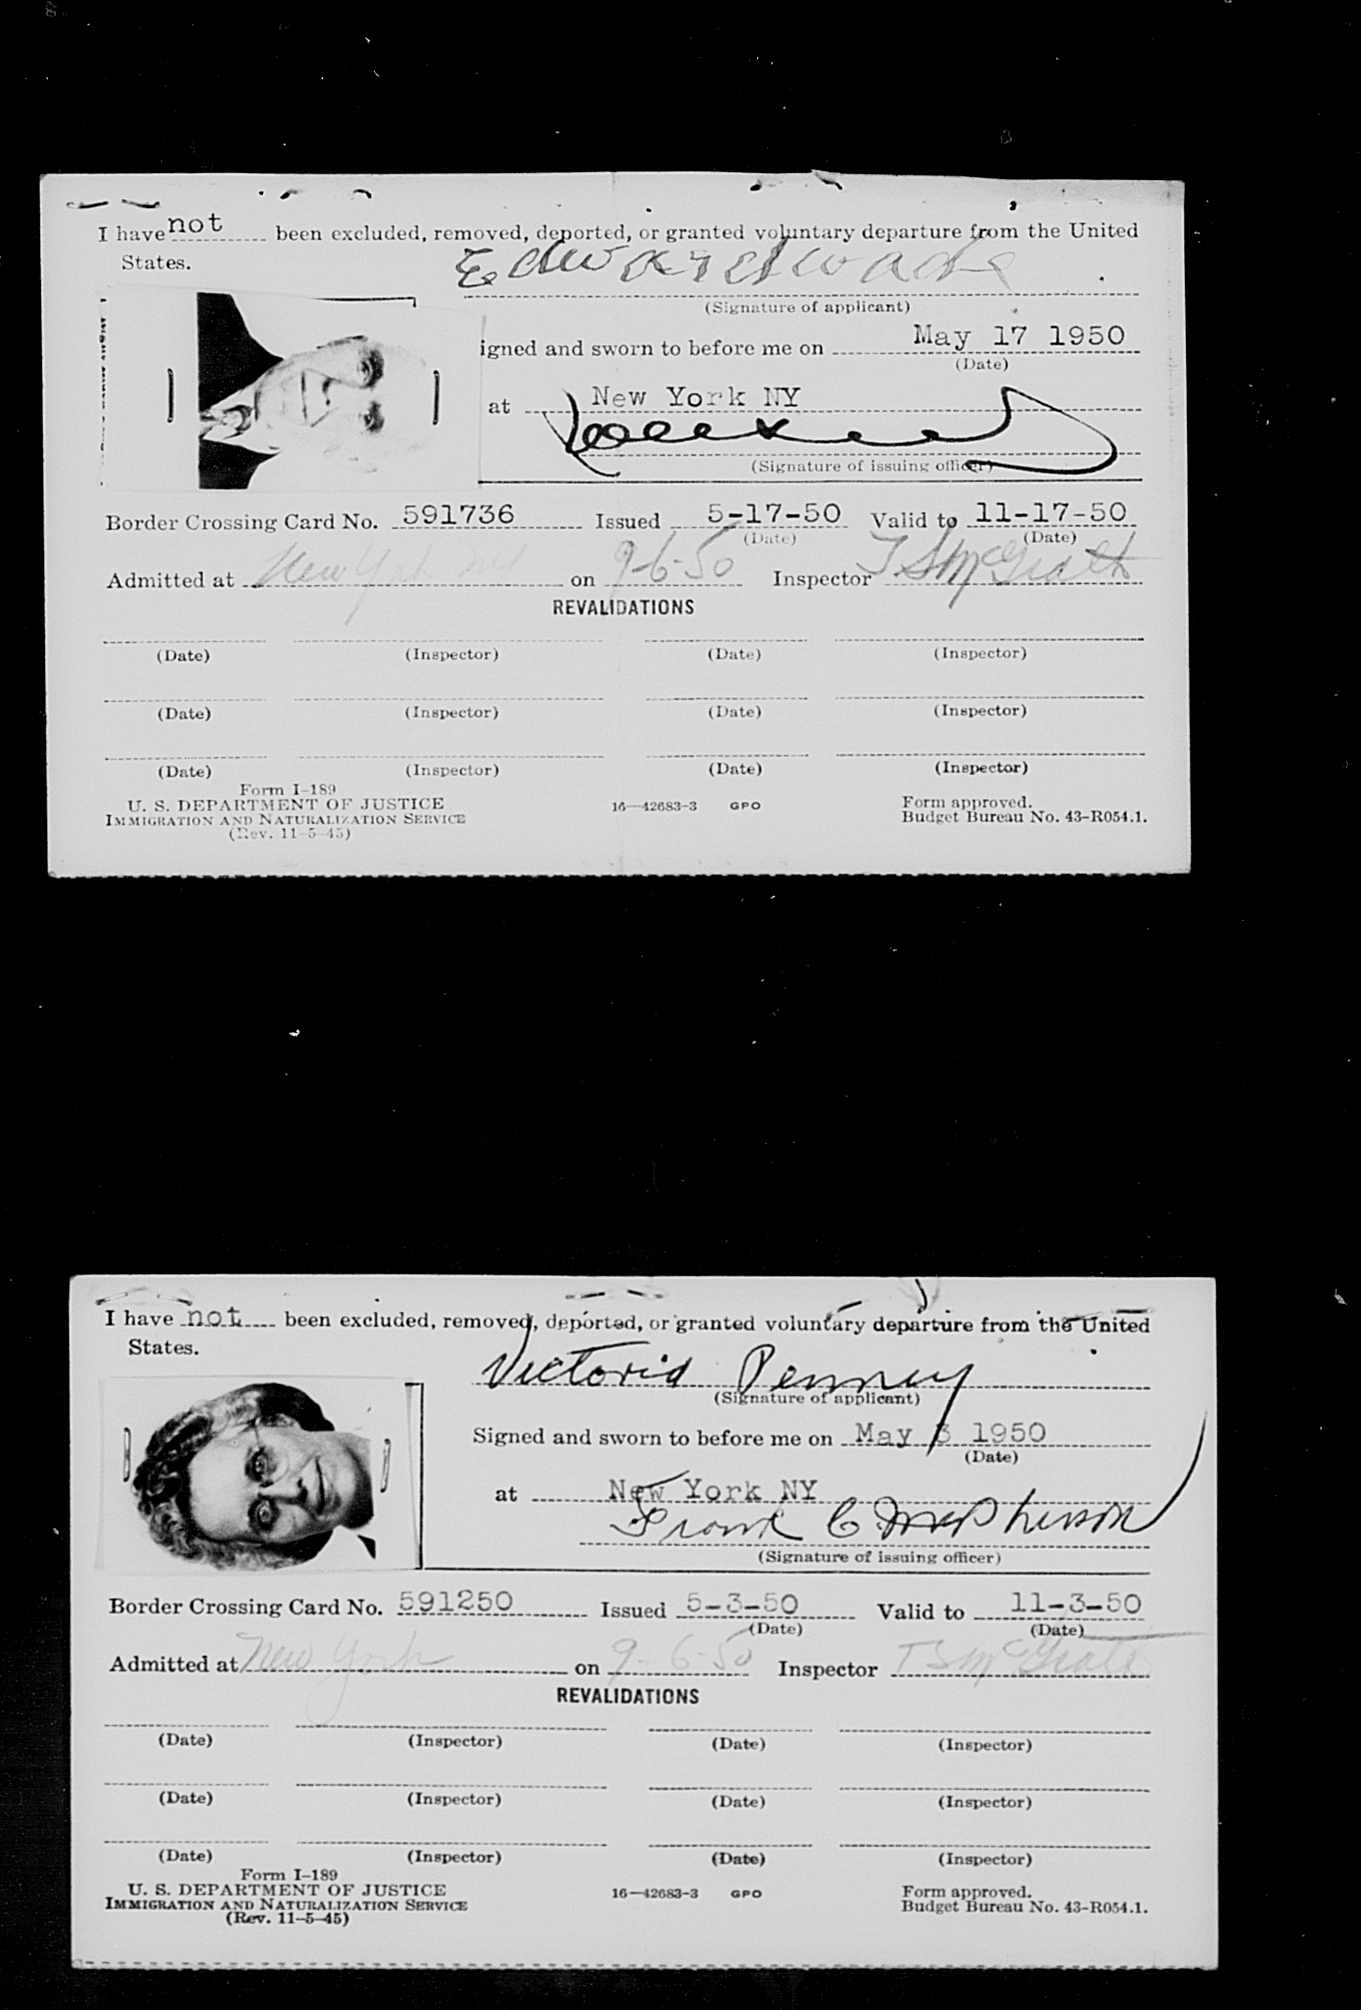 I have not been excluded, removed, deported, or granted voluntary departure from the United
States.
Edward Wade
(Signature of applicant)
igned and sworn to before me on May 17 1950
(Date)
at New York NY
(Signature of issuing officer)
Border Crossing Card No. 591736 Issued 5-17-50 Valid to 11-17-50
(Date) (Date)
Admitted at New York on 9-6-50 Inspector T S McGrath
REVALIDATIONS
(Date) (Inspector) (Date) (Inspector)
(Date) (Inspector) (Date) (Inspector)
(Date) (Inspector) (Date) (Inspector)
Form I-189
U. S. DEPARTMENT OF JUSTICE 16—42683-3 GPO Form approved.
IMMIGRATION AND NATURALIZATION SERVICE Budget Bureau No. 43-R054.1.
(Rev. 11-5-45)
I have not been excluded, removed, deported, or granted voluntary departure from the United
States.
Victoria Penney
(Signature of applicant)
Signed and sworn to before me on May 3 1950
(Date)
at New York NY
Frank C McPherson
(Signature of issuing officer)
Border Crossing Card No. 591250 Issued 5-3-50 Valid to 11-3-50
(Date) (Date)
Admitted at New York on 9-6-50 Inspector T S McGrath
REVALIDATIONS
(Date) (Inspector) (Date) (Inspector)
(Date) (Inspector) (Date) (Inspector)
(Date) (Inspector) (Date) (Inspector)
Form I-189
U. S. DEPARTMENT OF JUSTICE 16—42683-3 GPO Form approved.
IMMIGRATION AND NATURALIZATION SERVICE Budget Bureau No. 43-R054.1.
(Rev. 11-5-45)